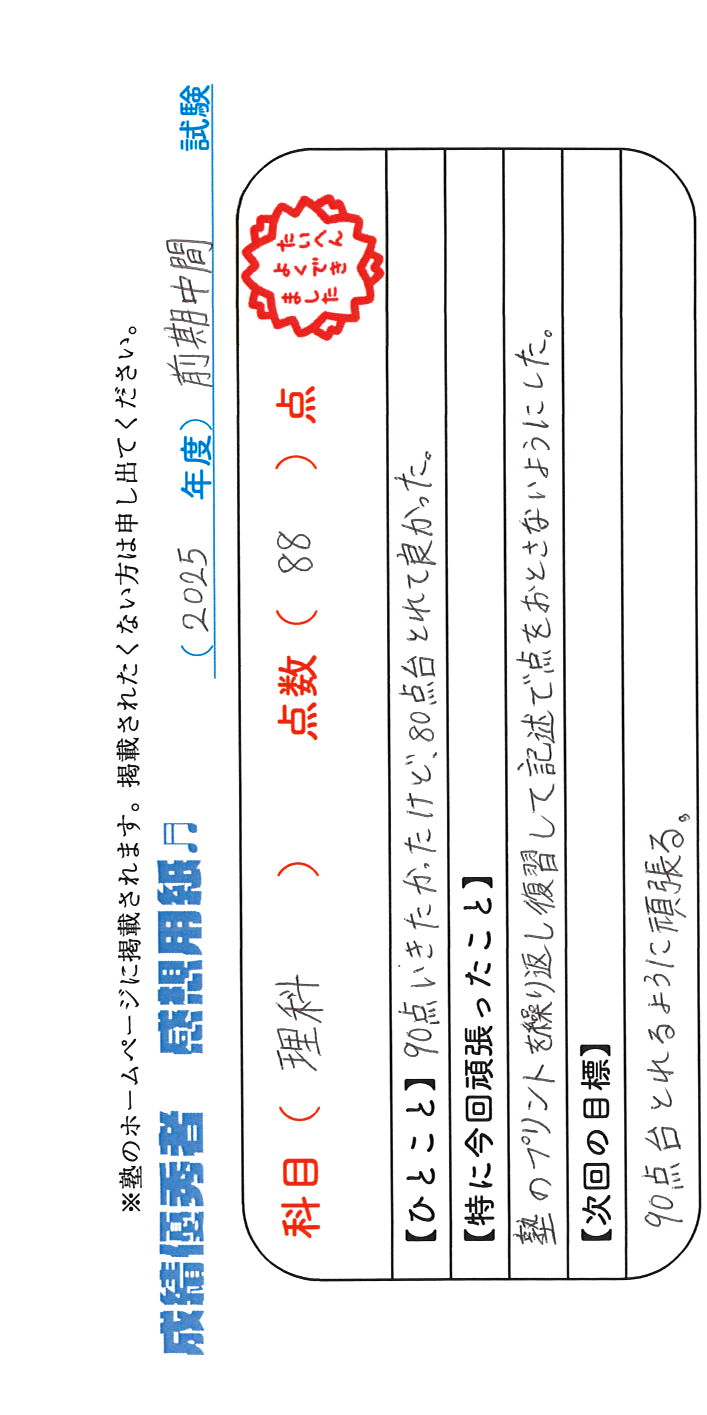 ※塾のホームページに掲載されます。掲載されたくない方は申し出てください。
成績優秀者 感想用紙♫ (2025 年度) 前期中間 試験
科目 ( 理科 ) 点数 ( 88 ) 点
たいへん
よくでき
ました
【ひとこと】90点いきたかったけど、80点台とれて良かった。
【特に今回頑張ったこと】
塾のプリントを繰り返し復習して記述で点をおとさないようにした。
【次回の目標】
90点台とれるように頑張る。